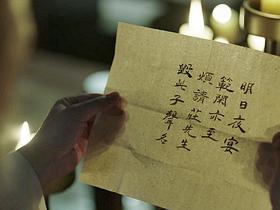 明日夜宴
範閑亦至
煩請莊先生
毀此子聲名